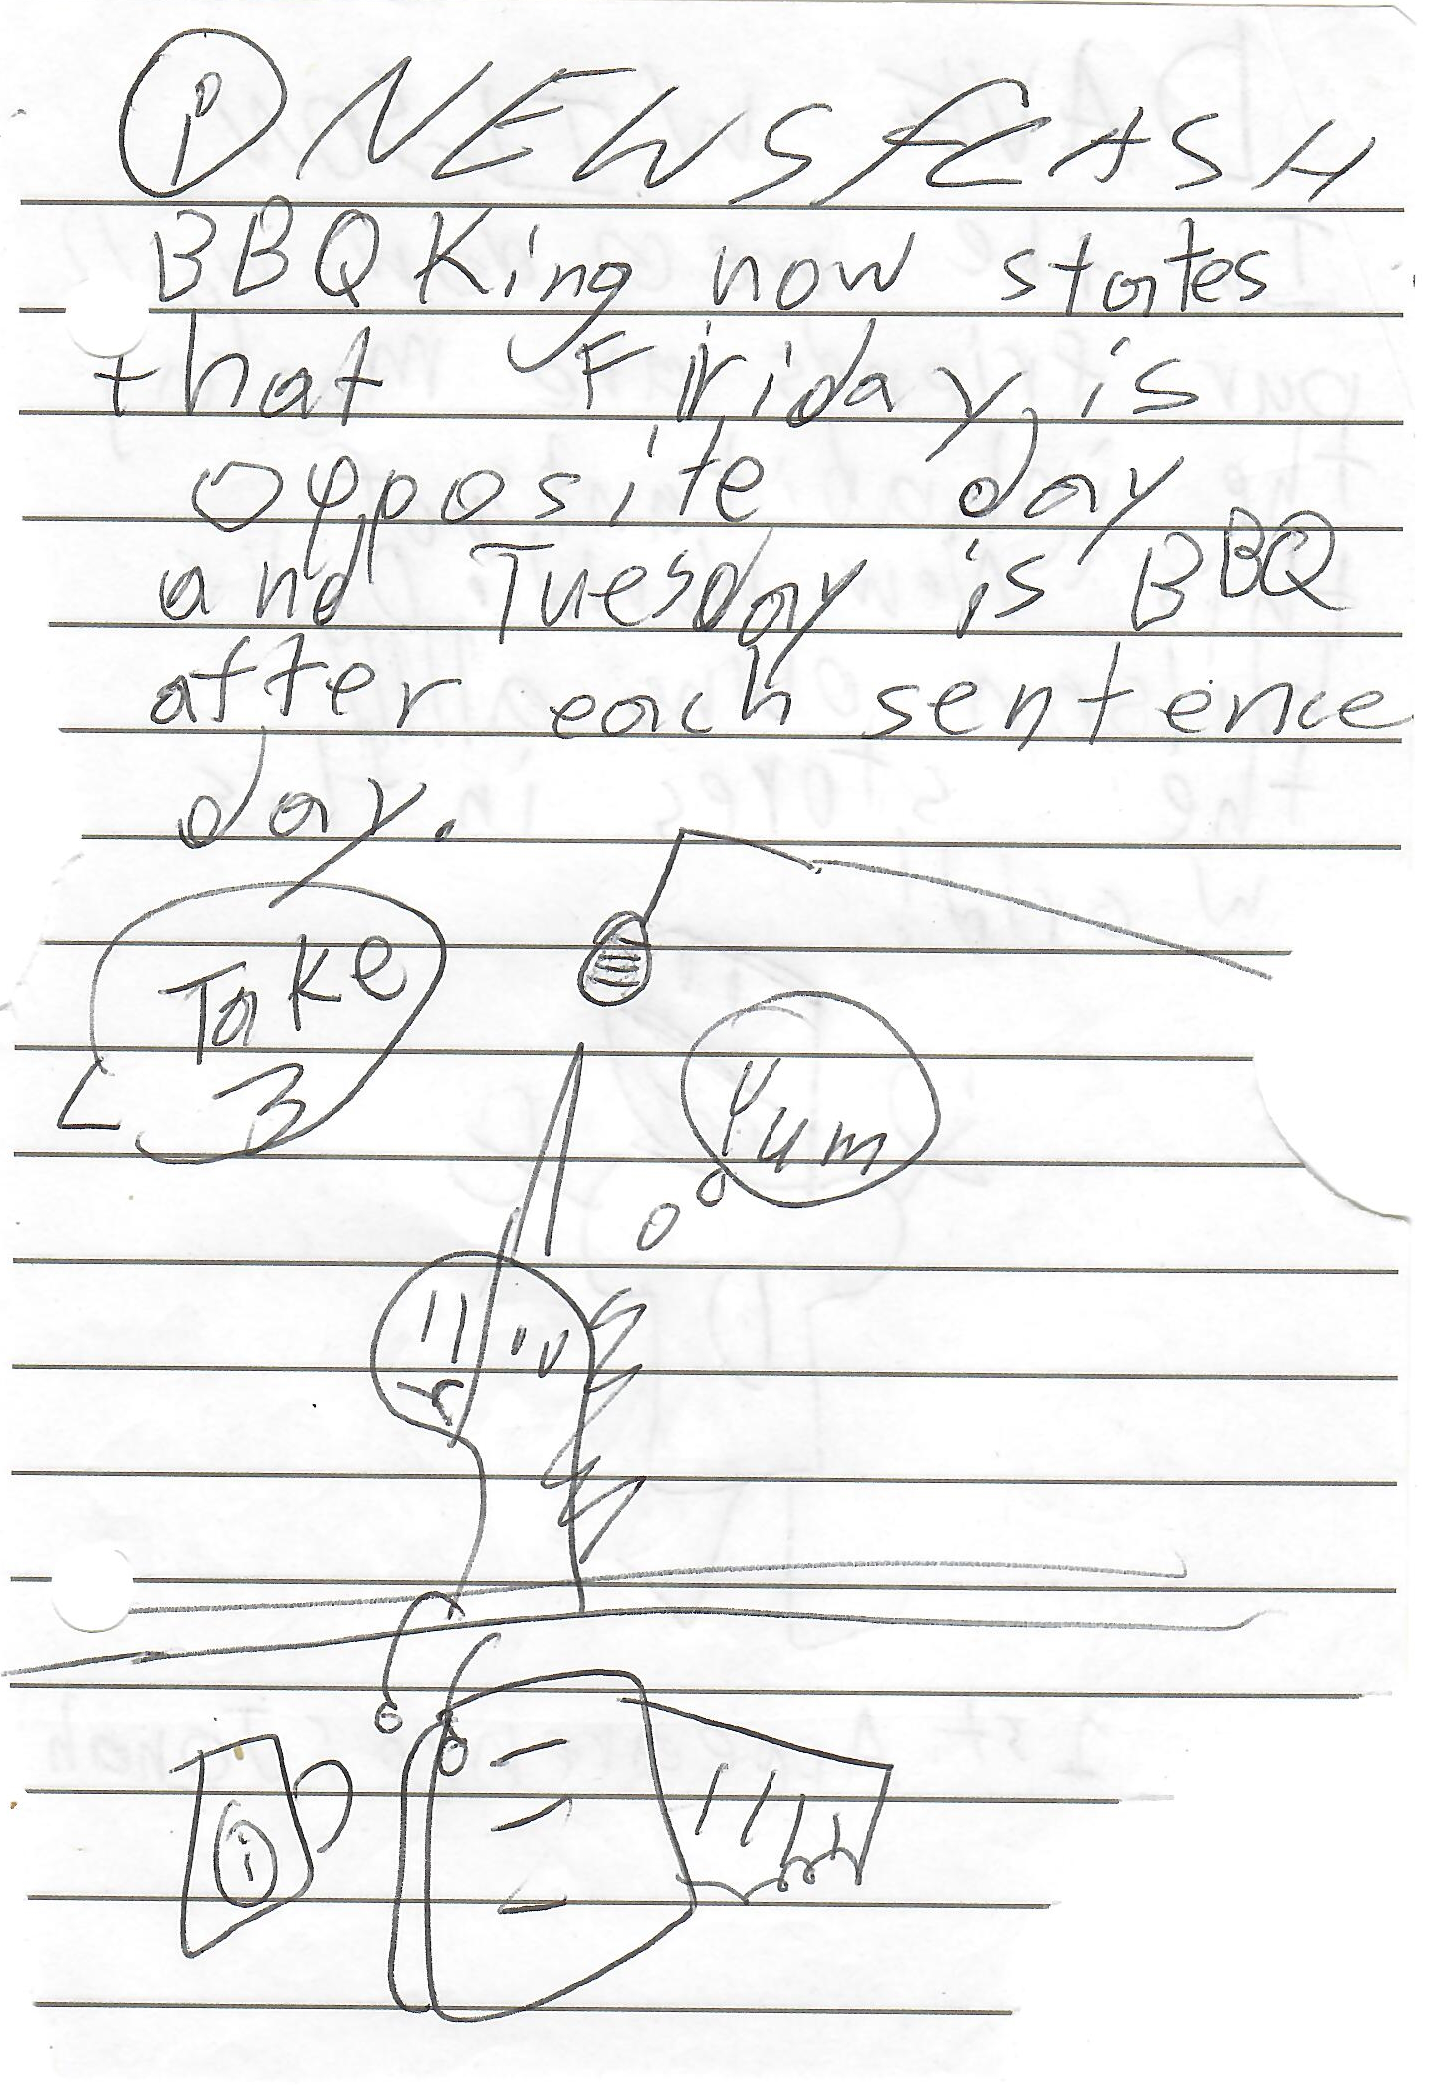 P NEWSFLASH
BBQ King now states
that Friday is
opposite day
and Tuesday is BBQ
after each sentence
day.
Take
3
Yum
i